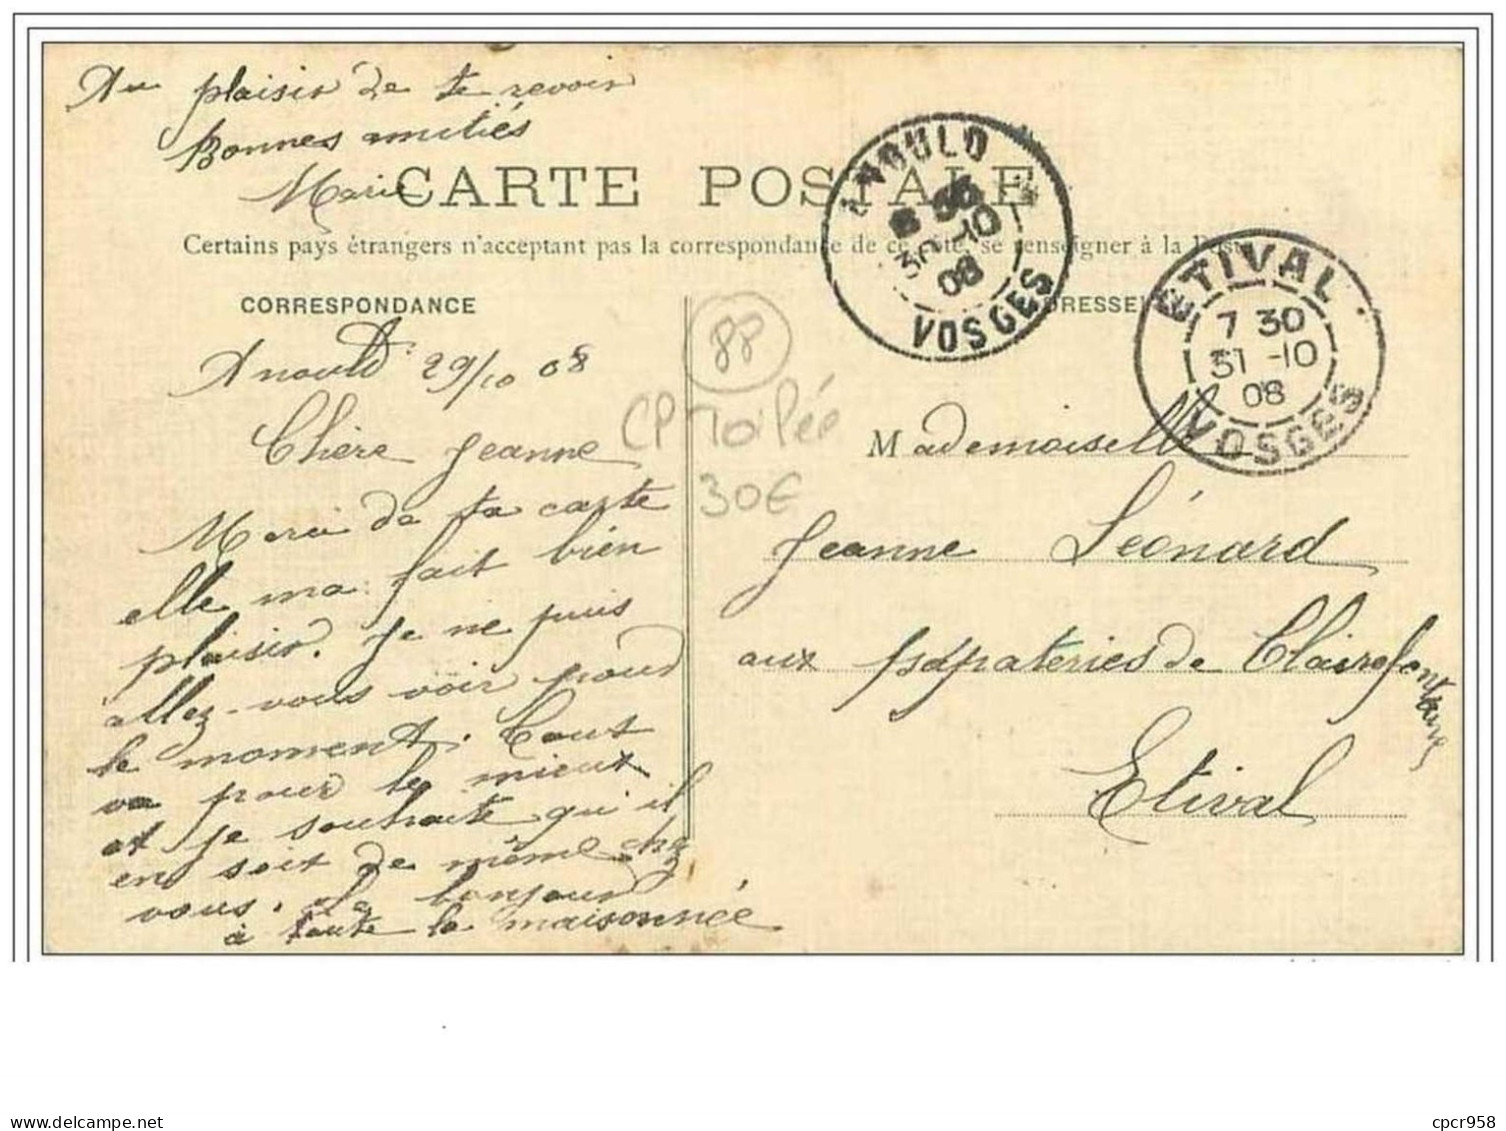 Au plaisir de te revoir
Bonnes amitiés
Marie
CARTE POSTALE
Certains pays étrangers n'acceptent pas la correspondance de ce côté, se renseigner à la Poste
CORRESPONDANCE
ADRESSE
ANOULD
30-10
08
VOSGES
ETIVAL
7 30
31 -10
08
VOSGES
88
CP Toilée
30€
Anould 29/10 08
Chère Jeanne
Merci de ta carte
elle ma fait bien
plaisir. Je ne puis
allez-vous voir pour
le moment. Tout
va pour le mieux
et je souhaite qui il
en soit de même chz
vous. Le bonjour
à toute la maisonnée
Mademoiselle
Jeanne Léonard
aux papeteries de Clairefontaine
Etival
cpcr958